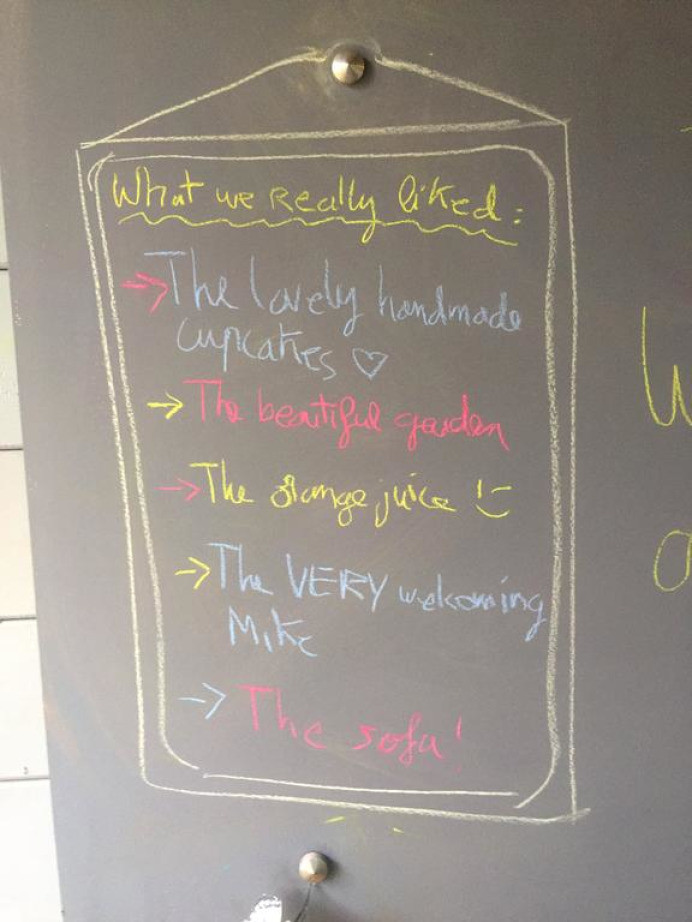 What we Really liked:
→ The lovely handmade
cupcakes ♡
→ The beautiful garden
→ The orange juice !
→ The VERY welcoming
Mike
→ The sofa!